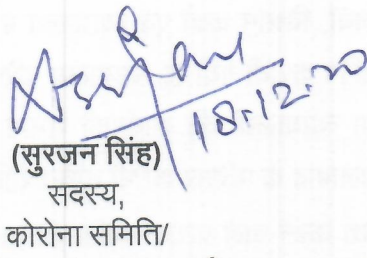 18.12.20
(सुरजन सिंह)
सदस्य,
कोरोना समिति/